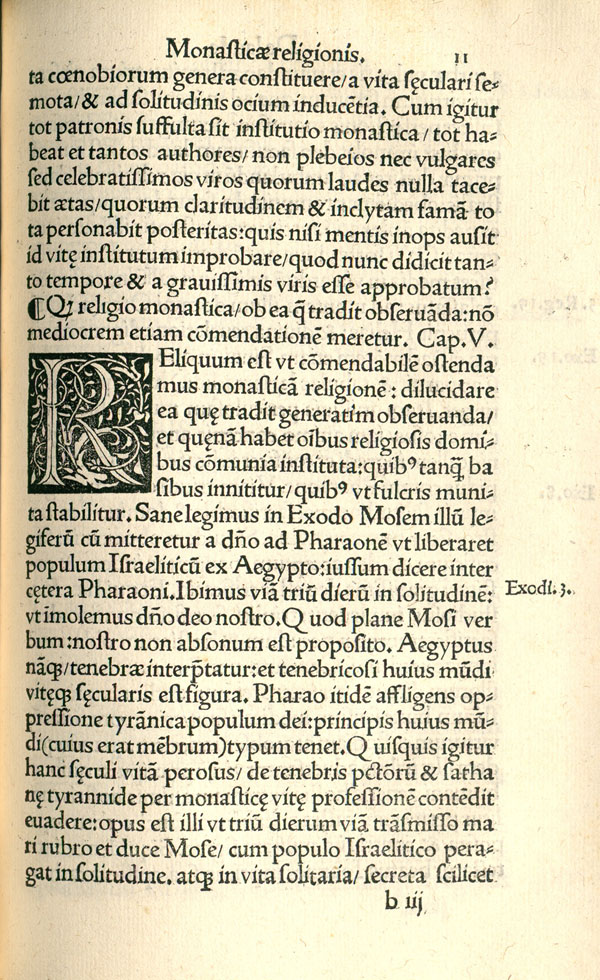 Monasticæ religionis. 11
ta cœnobiorum genera constituere/a vita sęculari se-
mota/& ad solitudinis ocium inducẽtia. Cum igitur
tot patronis suffulta sit institutio monastica/tot ha-
beat et tantos authores/non plebeios nec vulgares
sed celebratissimos viros quorum laudes nulla tace-
bit ætas/quorum claritudinem & inclytam famã to
ta personabit posteritas:quis nisi mentis inops ausit
id vitę institutum improbare/quod nunc didicit tan-
to tempore & a grauissimis viris esse approbatum?
¶Qꝫ religio monastica/ob ea q̃ tradit obseruãda:nõ
mediocrem etiam cõmendationẽ meretur. Cap.V.
REliquum est vt cõmendabilẽ ostenda
mus monasticã religionẽ: dilucidare
ea quę tradit generatim obseruanda/
et quęnã habet oĩbus religiosis domi-
bus cõmunia instituta:quibꝰ tanq̃ ba
sibus innititur/quibꝰ vt fulcris muni-
ta stabilitur. Sane legimus in Exodo Mosem illũ le-
giferũ cũ mitteretur a dño ad Pharaonẽ vt liberaret
populum Israeliticũ ex Aegypto:iussum dicere inter
cętera Pharaoni.Ibimus viã triũ dierũ in solitudinẽ:
Exodi.3.
vt ĩmolemus dño deo nostro.Quod plane Mosi ver
bum:nostro non absonum est proposito. Aegyptus
nãqꝫ/tenebræ interp̃tatur:et tenebricosi huius mũdi
vitęqꝫ sęcularis est figura. Pharao itidẽ affligens op-
pressione tyrãnica populum dei:principis huius mũ-
di(cuius erat mẽbrum)typum tenet.Quisquis igitur
hanc sęculi vitã perosus/ de tenebris pctõrũ & satha
nę tyrannide per monasticę vitę professionẽ contẽdit
euadere:opus est illi vt triũ dierum viã trãsmisso ma
ri rubro et duce Mose/ cum populo Israelitico pera-
gat in solitudine. atqꝫ in vita solitaria/ secreta scilicet
b iij